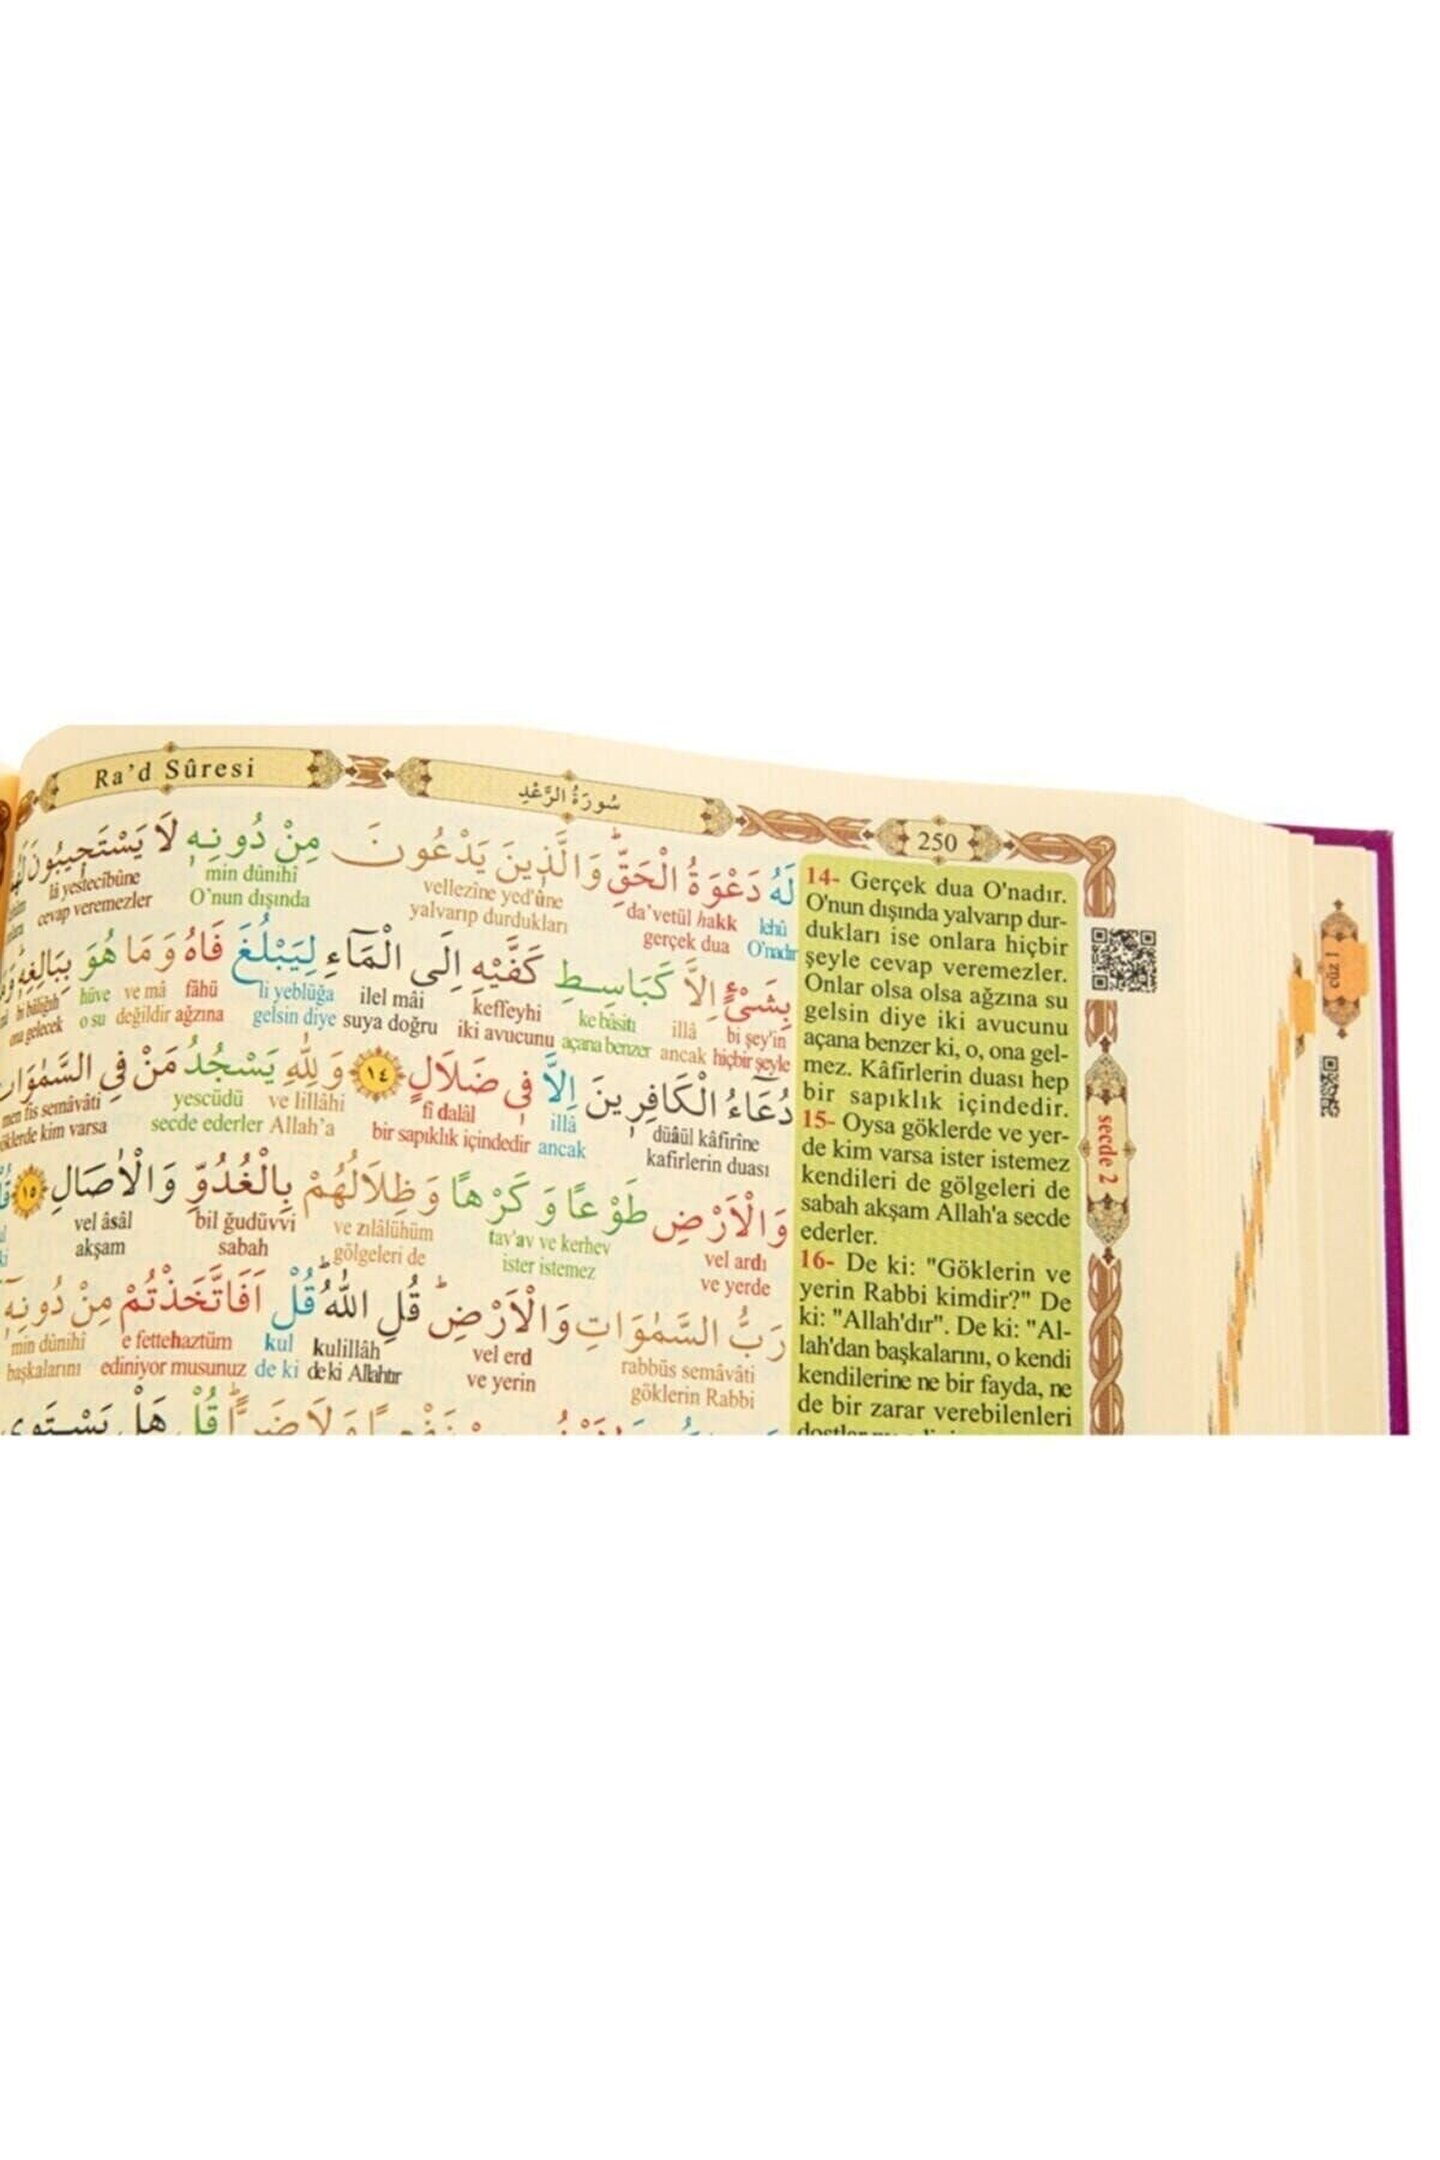 Ra'd Sûresi
سُورَةُ الرَّعْدِ
250
لَهُ دَعْوَةُ الْحَقِّ وَالَّذِينَ يَدْعُونَ مِنْ دُونِهِ لَا يَسْتَجِيبُونَ
lehû da'vetül hakk vellezîne yed'ûne min dûnihî lâ yestecîbûne
O'nadır gerçek dua yalvarıp durdukları O'nun dışında cevap veremezler
بِشَيْءٍ إِلَّا كَبَاسِطِ كَفَّيْهِ إِلَى الْمَاءِ لِيَبْلُغَ فَاهُ وَمَا هُوَ بِبَالِغِهِ
bi şey'in illâ ke bâsiti keffeyhi ilel mâi li yeblüğa fâhü ve mâ hüve bi bâliğıh
hiçbir şeyle ancak açana benzer iki avucunu suya doğru gelsin diye ağzına değildir o su ona gelecek
دُعَاءُ الْكَافِرِينَ إِلَّا فِي ضَلَالٍ ١٤ وَلِلَّهِ يَسْجُدُ مَنْ فِي السَّمٰوَاتِ
düâül kâfirîne illâ fî dalâl ve lillâhi yescüdü men fis semâvâti
kafirlerin duası ancak bir sapıklık içindedir Allah'a secde ederler göklerde kim varsa
وَالْاَرْضِ طَوْعًا وَكَرْهًا وَظِلَالُهُمْ بِالْغُدُوِّ وَالْاٰصَالِ ١٥
vel ardı tav'av ve kerhev ve zılâlühüm bil ğudüvvi vel âsâl
ve yerde ister istemez gölgeleri de sabah akşam
رَبُّ السَّمٰوَاتِ وَالْاَرْضِ قُلِ اللّٰهُ قُلْ اَفَاتَّخَذْتُمْ مِنْ دُونِهِ
rabbüs semâvâti vel erd kulillâh kul e fettehaztüm min dûnihî
göklerin Rabbi ve yerin de ki Allahtır de ki ediniyor musunuz başkalarını
قُلْ هَلْ يَسْتَوِي
14- Gerçek dua O'nadır.
O'nun dışında yalvarıp dur-
dukları ise onlara hiçbir
şeyle cevap veremezler.
Onlar olsa olsa ağzına su
gelsin diye iki avucunu
açana benzer ki, o, ona gel-
mez. Kâfirlerin duası hep
bir sapıklık içindedir.
15- Oysa göklerde ve yer-
de kim varsa ister istemez
kendileri de gölgeleri de
sabah akşam Allah'a secde
ederler.
16- De ki: "Göklerin ve
yerin Rabbi kimdir?" De
ki: "Allah'dır". De ki: "Al-
lah'dan başkalarını, o kendi
kendilerine ne bir fayda, ne
de bir zarar verebilenleri
secde 2
cüz 1